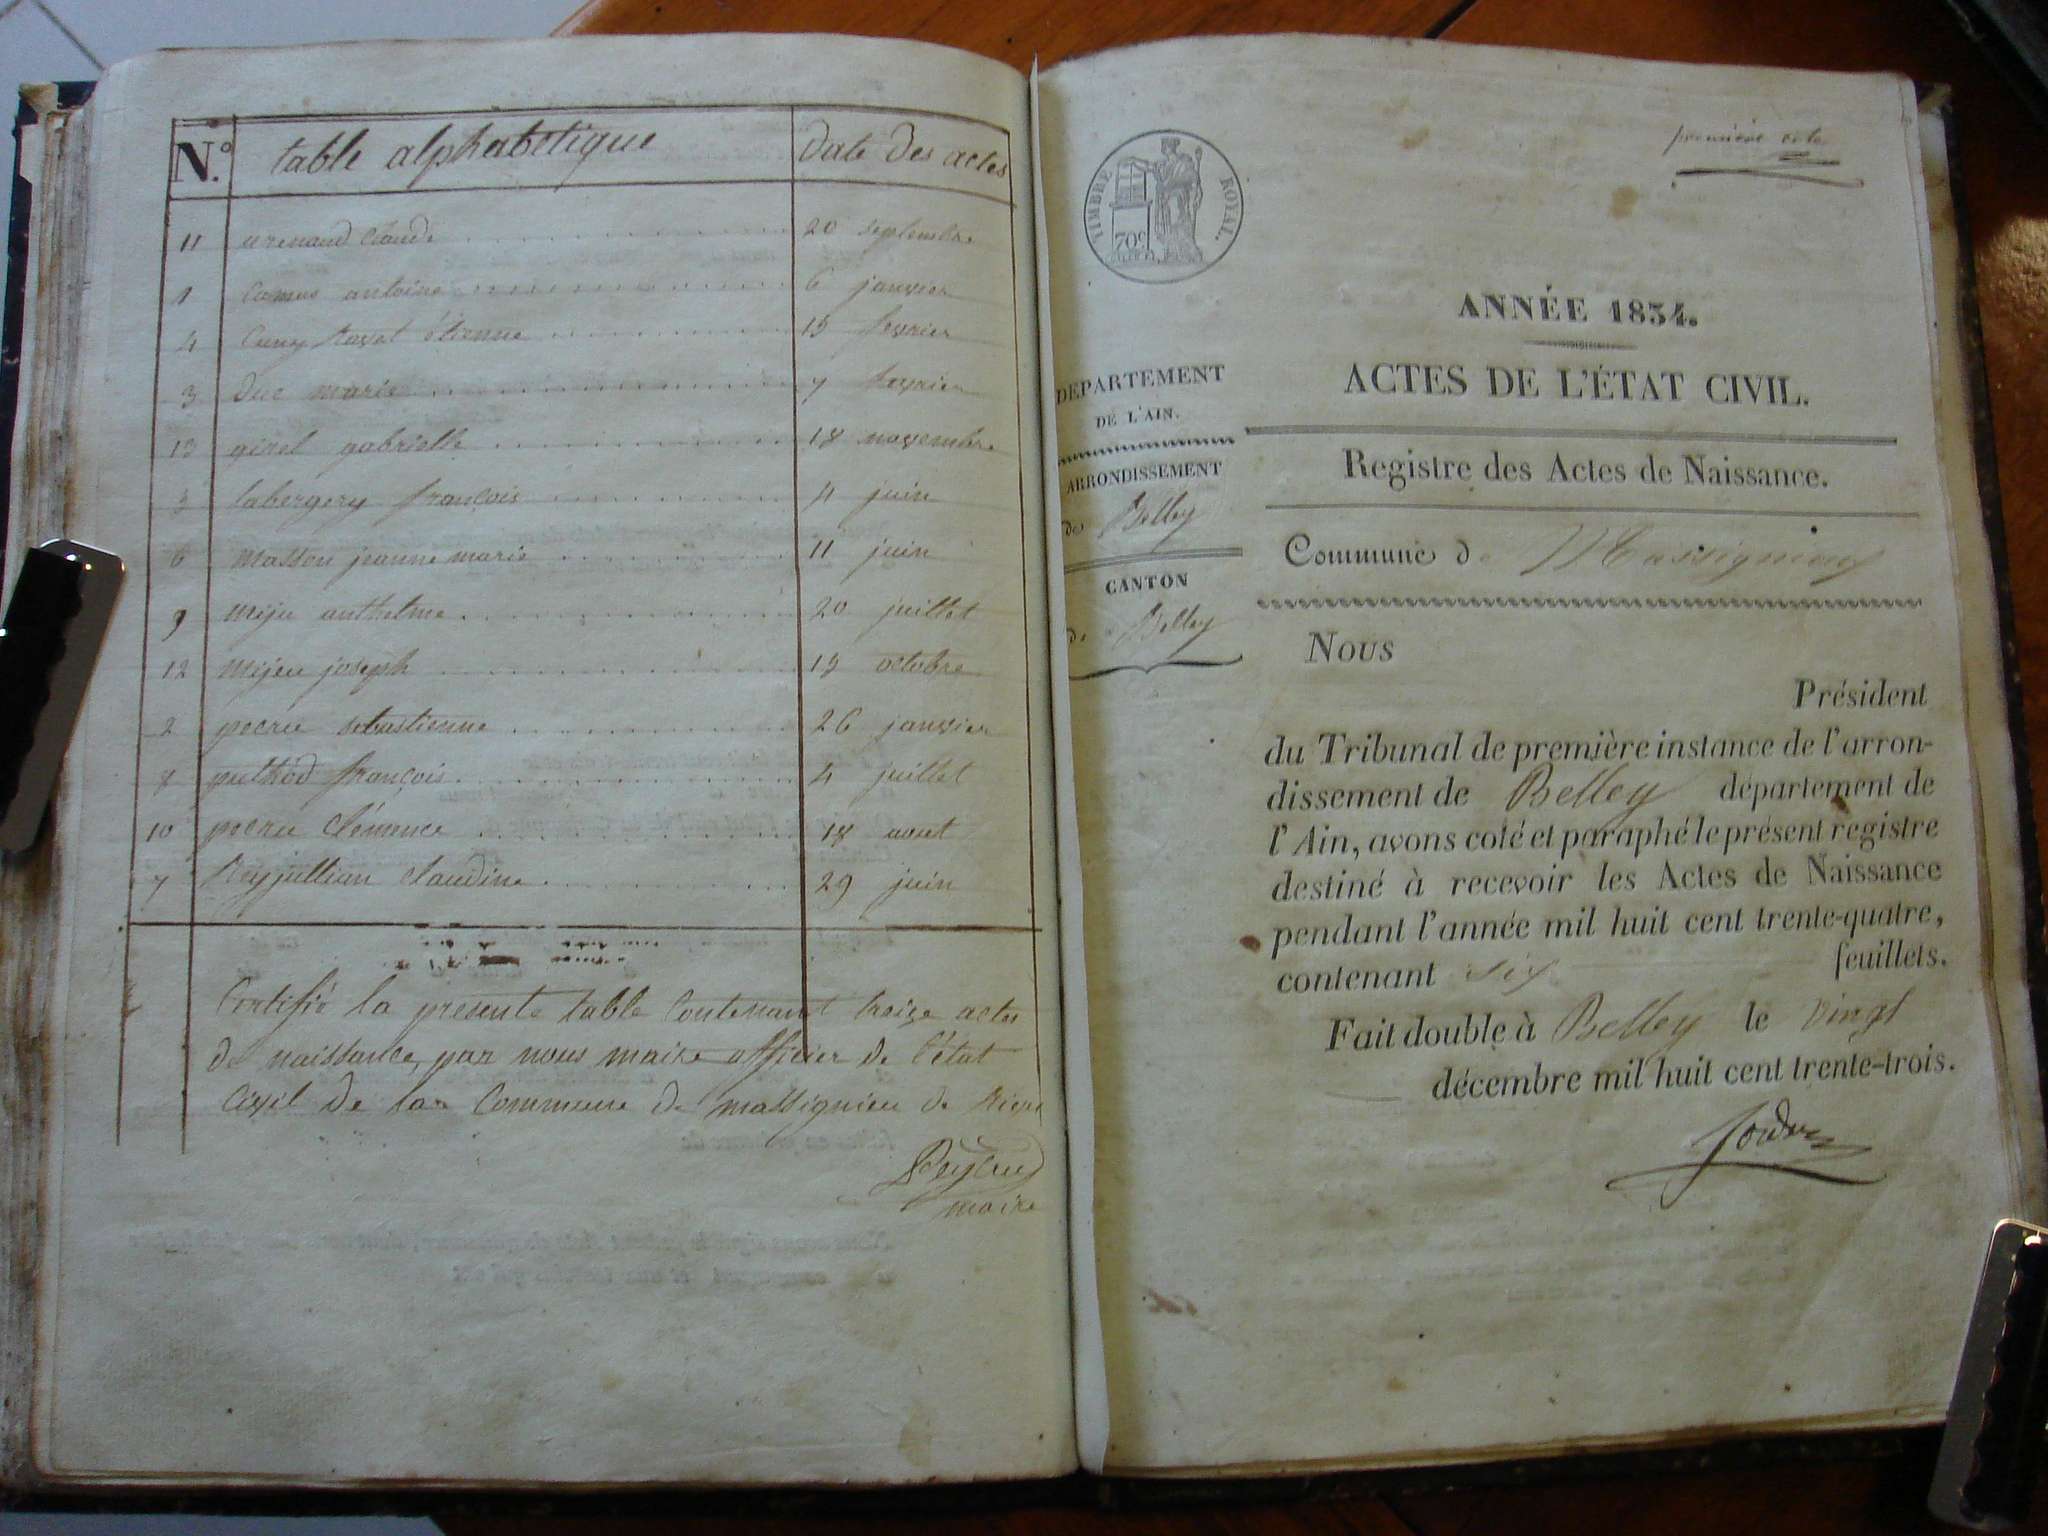 N.° table alphabetique Date Des actes
11 Claude 20 septembre
1 Camus antoine 6 janvier
4 Cuny Ravet étienne 15 fevrier
3 Duc marie 7 fevrier
13 girel gabrielle 18 novembre
5 labergery françois 4 juin
6 Masson jeanne marie 11 juin
9 Mijeu anthelme 20 juillet
12 Mijeu joseph 15 octobre
2 pecru sebastienne 26 janvier
8 puthod françois 4 juillet
10 pecru Clémence 18 aout
7 Reyjullian Claudine 29 juin
Certifié la presente table Contenant treize actes
de naissance, par nous maire officier de l'état
Civil de la Commune de massignieu de Rives
maire
première cote
TIMBRE ROYAL.
70c
ANNÉE 1834.
ACTES DE L'ÉTAT CIVIL.
DÉPARTEMENT
DE L'AIN.
ARRONDISSEMENT
de Belley
CANTON
de Belley
Registre des Actes de Naissance.
Commune de Massignieu
Nous
Président
du Tribunal de première instance de l'arron-
dissement de Belley département de
l'Ain, avons coté et paraphé le présent registre
destiné à recevoir les Actes de Naissance
pendant l'année mil huit cent trente-quatre,
contenant six feuillets.
Fait double à Belley le vingt
décembre mil huit cent trente-trois.